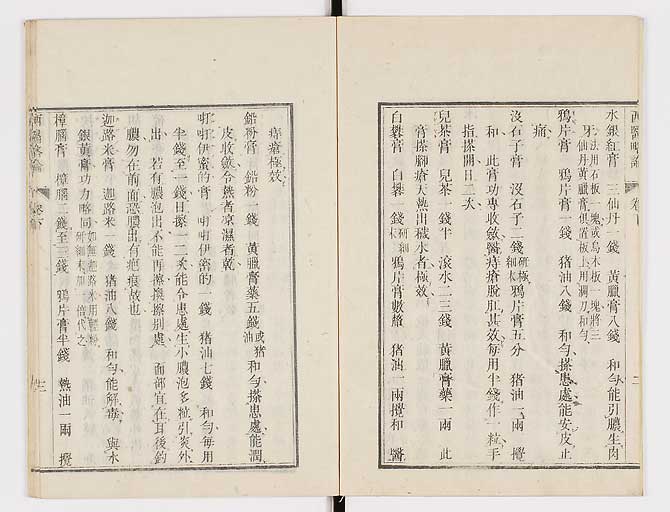 西醫略論
水銀紅膏　三仙丹一錢　黃臘膏八錢　和勻能引膿生肉
牙法用石板一塊或烏木板一塊將三
仙丹黃臘膏俱置板上用調刀和勻
鴉片膏　鴉片膏一錢　猪油八錢　和勻搽患處能安皮止
痛
沒石子膏　沒石子二錢研極細末鴉片膏五分　猪油一兩　攪
和　此膏功專收斂醫痔瘡脫肛甚效每用半錢作一粒手
指搽開日二次
兒茶膏　兒茶一錢半　滾水二三錢　黃臘膏藥一兩　此
膏搽腳瘡天熱出穢水者極效
白礬膏　白礬一錢研細鴉片膏數釐　猪油一兩攪和　醫
痔瘡極效
鉛粉膏　鉛粉一錢　黃臘膏藥五錢或猪油　和勻搽患處能潤
皮收斂令熱者凉濕者乾
吐吐伊蜜的膏　吐吐伊密的一錢　猪油七錢　和勻每用
半錢至一錢日擦一二次能令患處生小膿泡多粒引炎外
出　若有膿泡出不能再擦換擦別處　面部宜在耳後鈞
膿勿在前面恐膿出有疤痕故也
迦路米膏　迦路米一錢　猪油八錢　和勻能解毒　與水
銀黃膏功力略同如無迦路米用輕粉研細末加一倍代之
樟腦膏　樟腦一錢至三錢　鴉片膏半錢　熱油一兩　攪
西醫略論